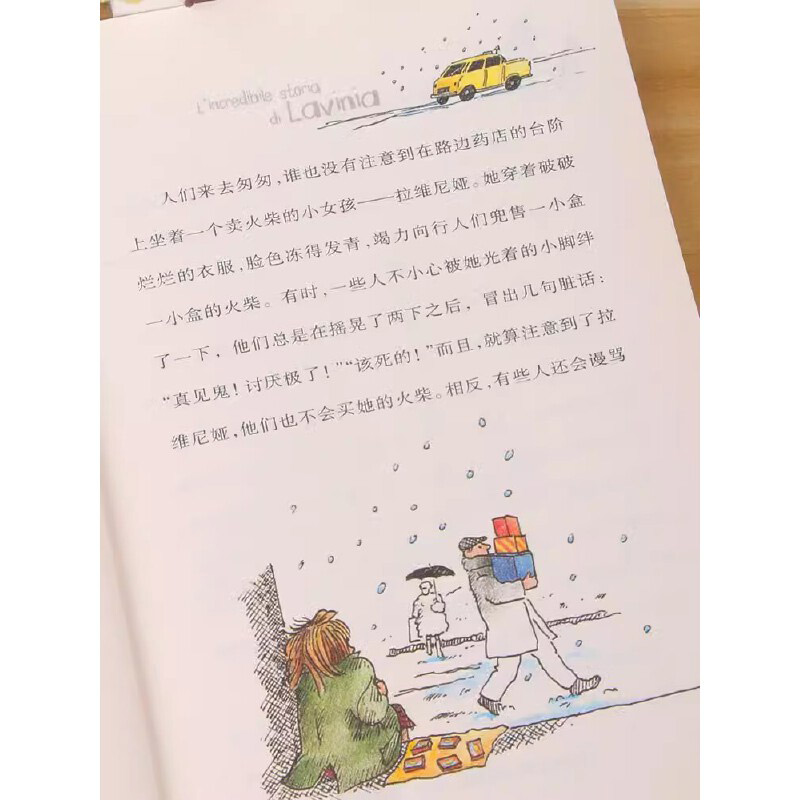 L'incredibile storia
di Lavinia
人们来去匆匆，谁也没有注意到在路边药店的台阶
上坐着一个卖火柴的小女孩——拉维尼娅。她穿着破破
烂烂的衣服，脸色冻得发青，竭力向行人们兜售一小盒
一小盒的火柴。有时，一些人不小心被她光着的小脚绊
了一下，他们总是在摇晃了两下之后，冒出几句脏话：
“真见鬼！讨厌极了！”“该死的！”而且，就算注意到了拉
维尼娅，他们也不会买她的火柴。相反，有些人还会谩骂